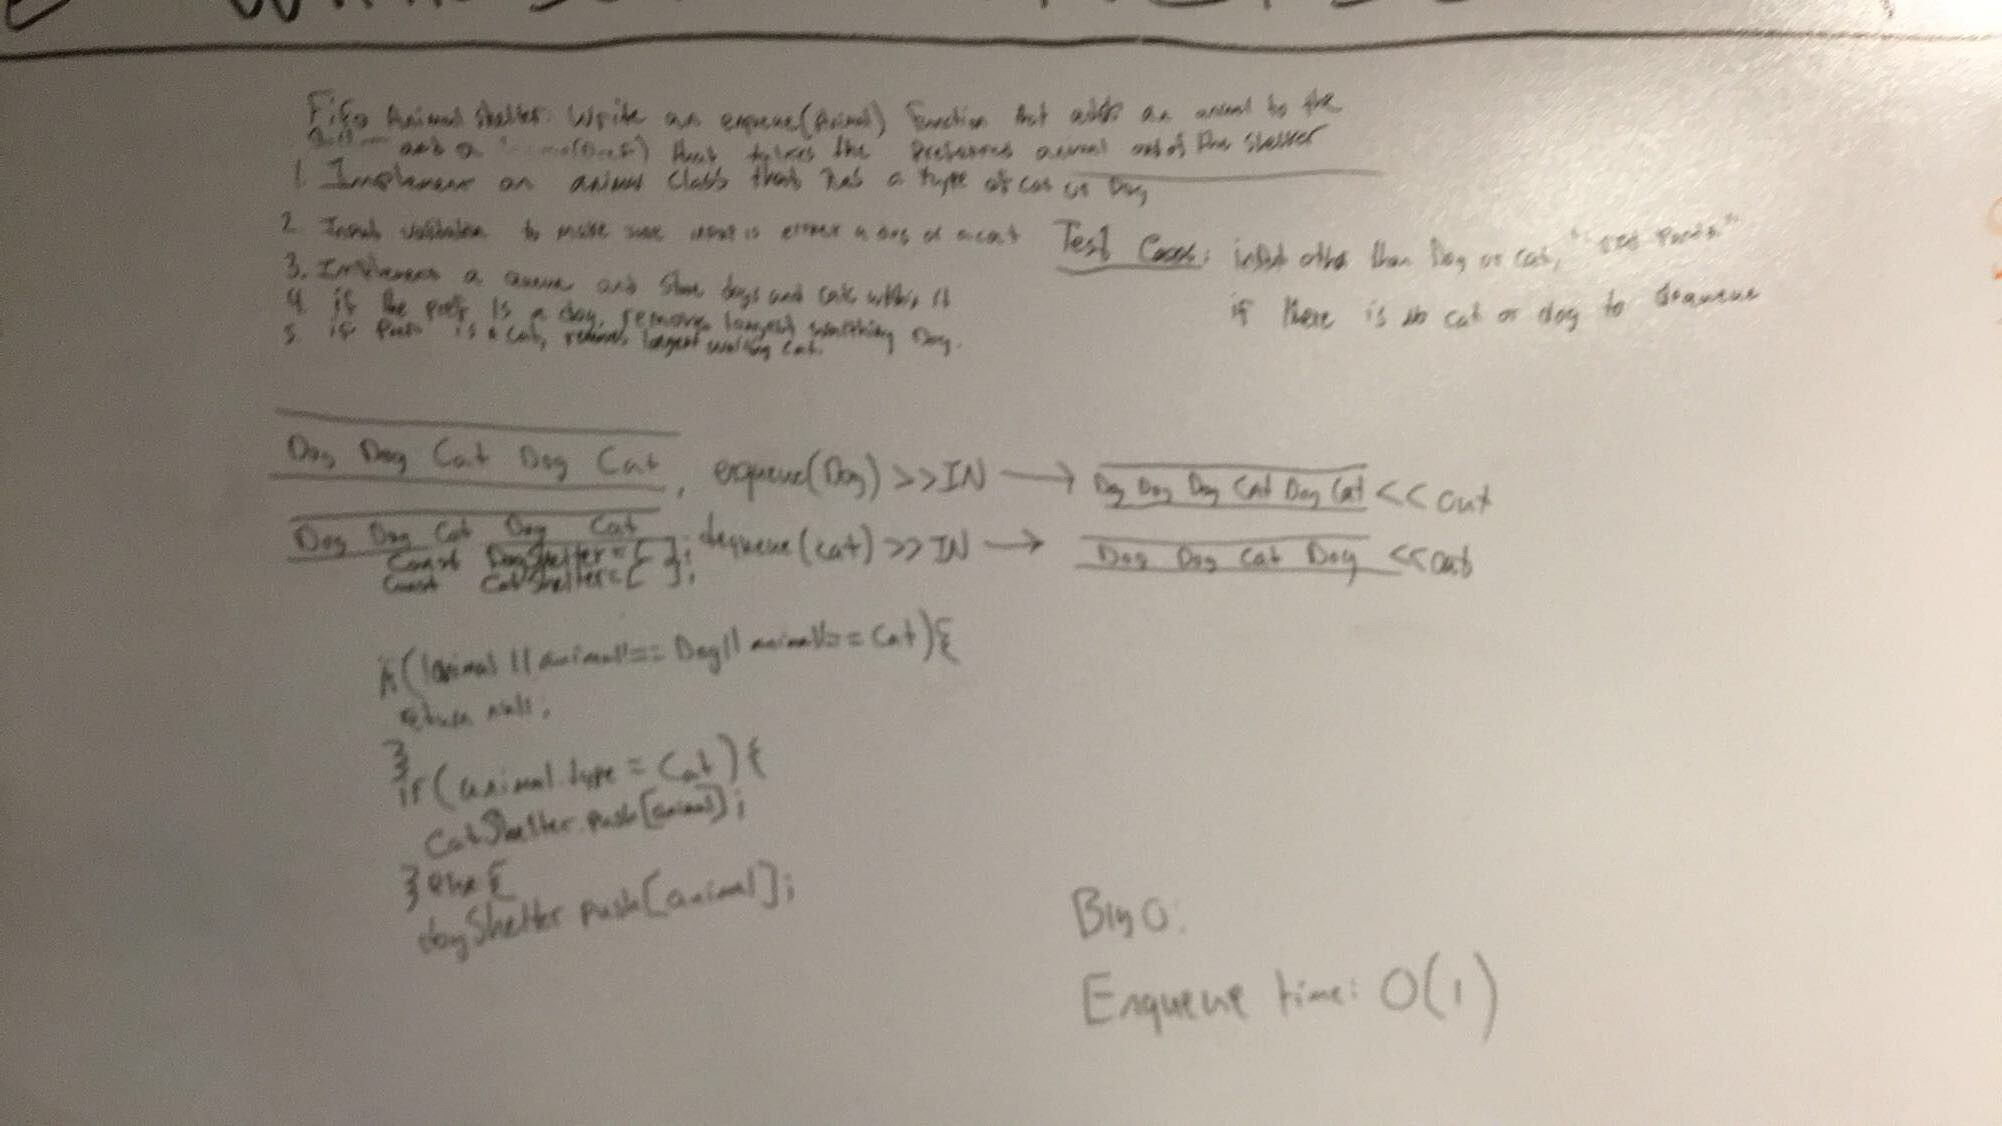 Fifo Animal Shelter: Write an enqueue(Animal) function that adds an animal to the
and a that takes the preferred animal out of the shelter
1. Implement an animal class that has a type of cat or Dog
2. Input validation to make sure input is either a dog or a cat
3. Implement a queue and store dogs and cats within it
4. if the pref is a dog, remove longest something Dog.
5. if pref is a cat, remove longest waiting cat.
Test Cases: input other than Dog or cat, "
if there is no cat or dog to dequeue
Dog Dog Cat Dog Cat, enqueue(Dog) >>IN → Dog Dog Dog Cat Dog Cat << out
Dog Dog Cat Dog Cat dequeue(cat) >>IN → Dog Dog Cat Dog <<out
Const DogShelter = [ ];
Const CatShelter = [ ];
if(!animal || animal!== Dog|| animal!== Cat){
return null;
}
if(animal.type = Cat){
CatShelter.push[animal];
}else{
dogShelter.push[animal];
Big O:
Enqueue time: O(1)